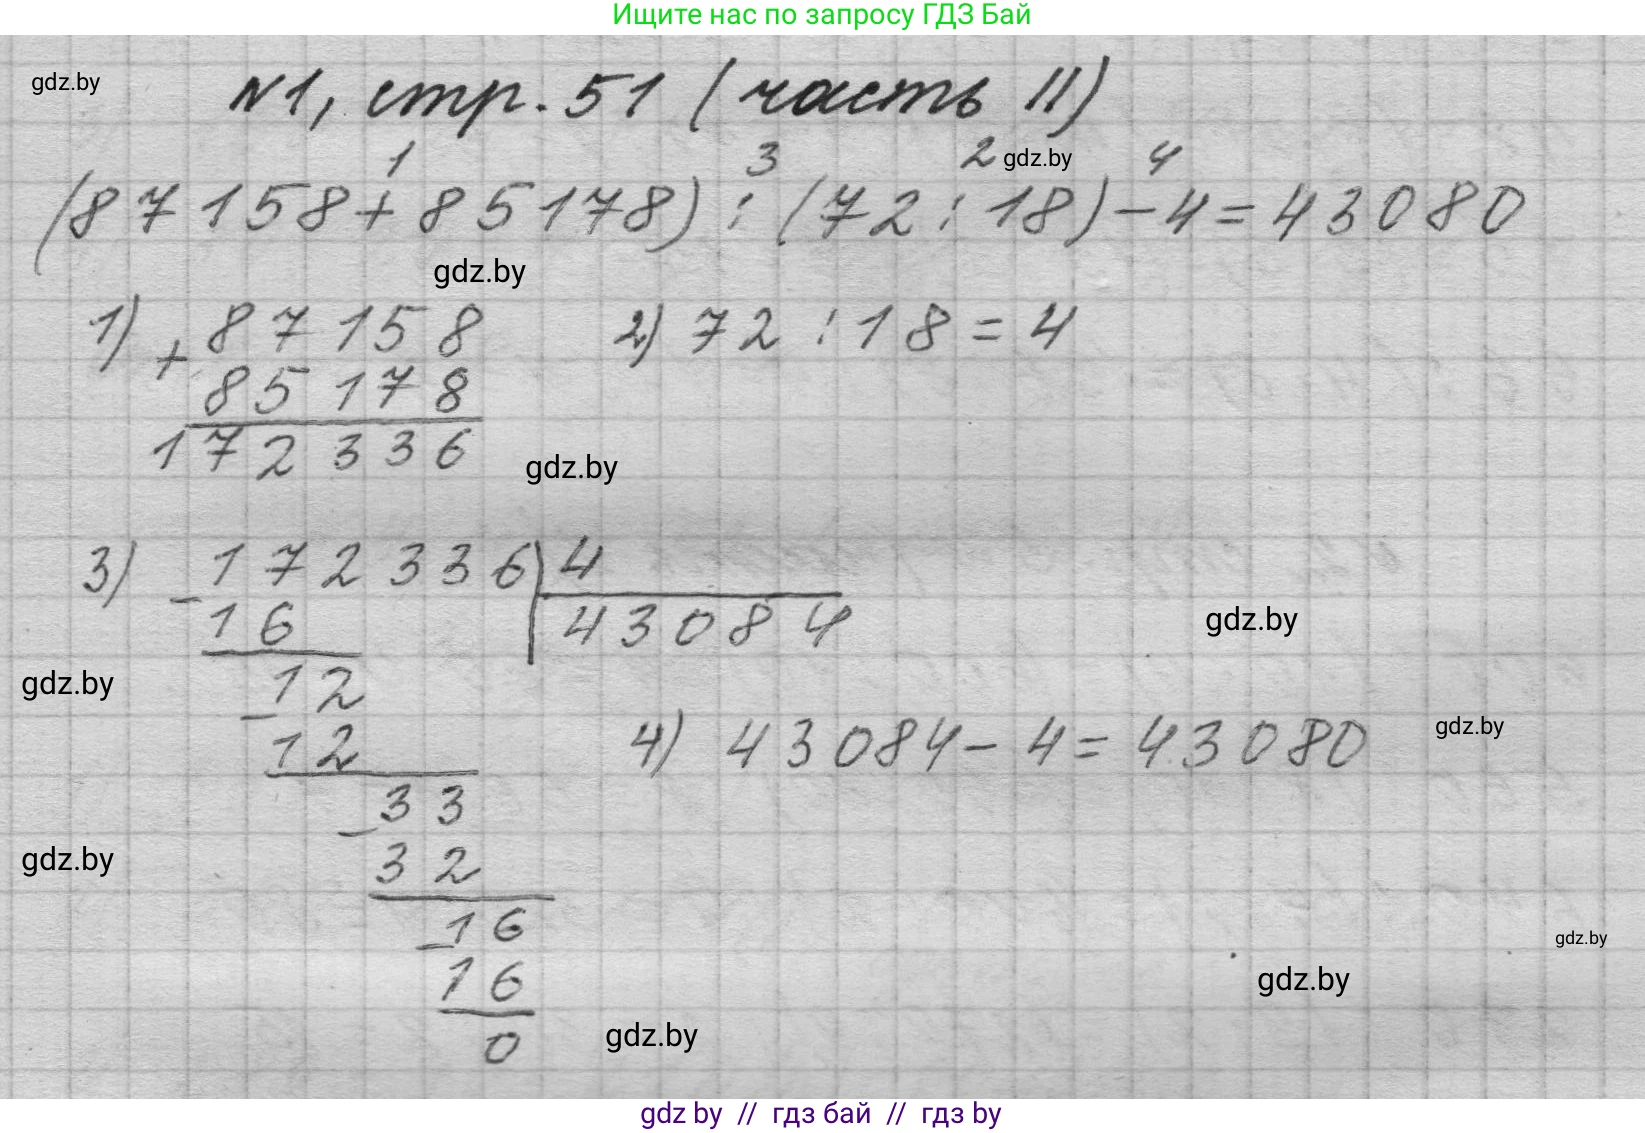 Ищите нас по запросу ГДЗ Бай
gdz.by
№1, стр. 51 (часть II)
1 3 2 gdz.by 4
(87158+85178):(72:18)-4=43080
gdz.by
1) + 87158 2) 72:18=4
85178
172336
gdz.by
3) - 172336 4
16 43084
gdz.by
gdz.by
- 12
12 4) 43084-4=43080
gdz.by
- 33
32
gdz.by
- 16
gdz.by
16
gdz.by
0
gdz.by
gdz by // гдз бай // гдз by